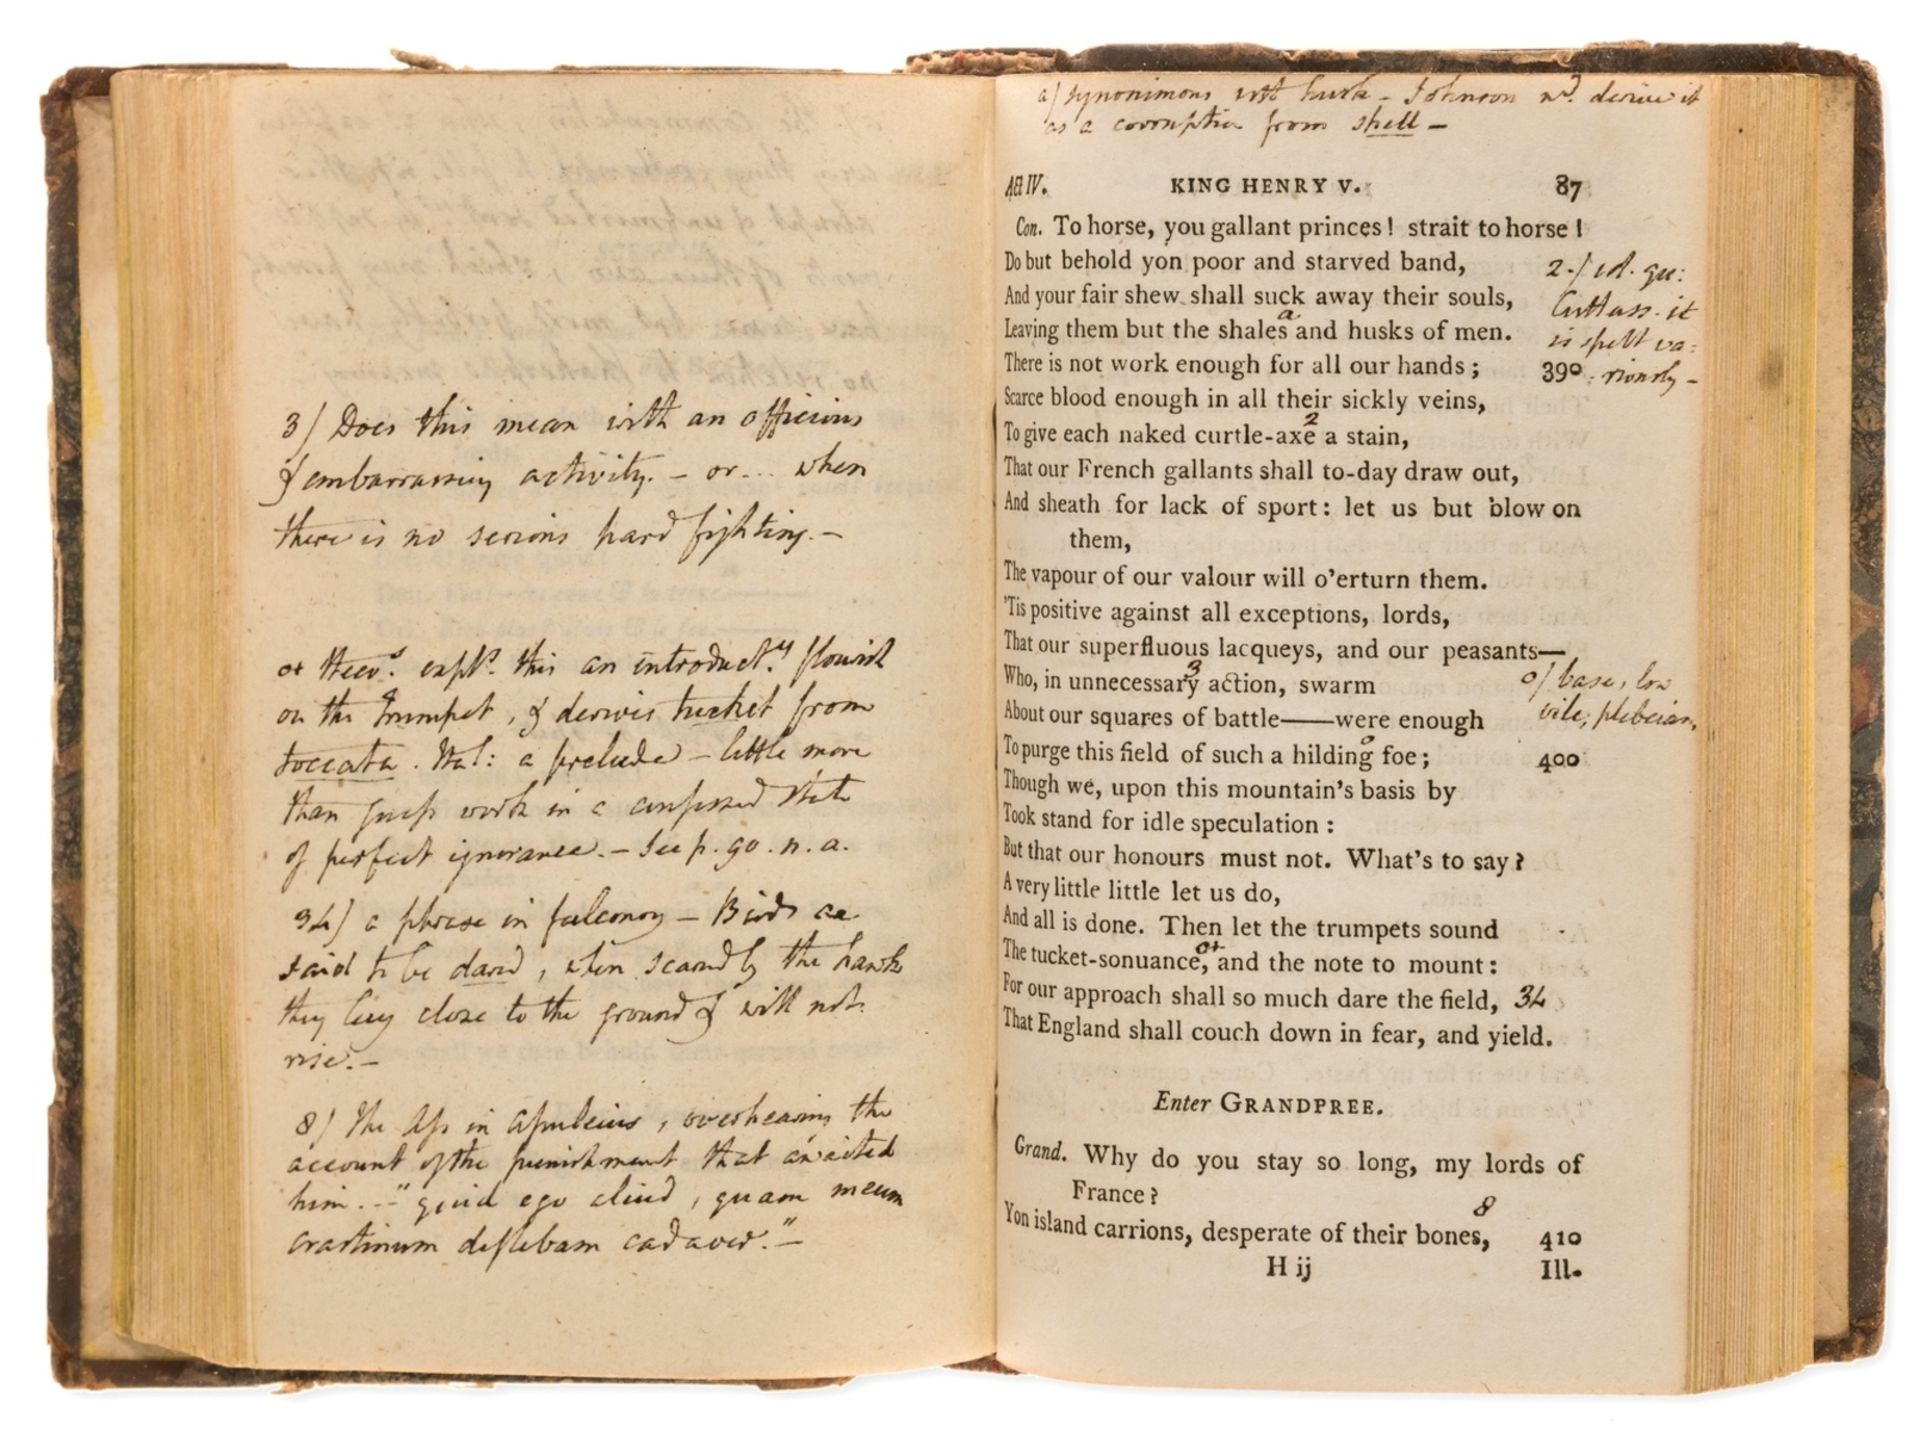 3/ Does this mean with an officious
& embarrassing activity. - or... when
there is no serious hard fighting. -
o+ Steevs. expls. this an introducty. flourish
on the Trumpet, & derives tucket from
toccata. Ital: a prelude - little more
than guess work in a confessed state
of perfect ignorance. - See p. 90. n. a.
34/ a phrase in falconry - Birds are
said to be dared, when scared by the hawk
they lay close to the ground & will not
rise. -
8/ The Ass in Apuleius, overhearing the
account of the punishment that awaited
him. .. "quid ego aliud, quam meum
crastinum deflebam cadaver." -
a/ synonimous with husk - Johnson wd. derive it
as a corruption from shell -
Act IV. KING HENRY V. 87
Con. To horse, you gallant princes! strait to horse!
Do but behold yon poor and starved band,
And your fair shew shall suck away their souls,
Leaving them but the shales a and husks of men.
There is not work enough for all our hands; 390
Scarce blood enough in all their sickly veins,
To give each naked curtle-axe 2 a stain,
That our French gallants shall to-day draw out,
And sheath for lack of sport: let us but blow on
them,
The vapour of our valour will o'erturn them.
'Tis positive against all exceptions, lords,
That our superfluous lacqueys, and our peasants—
Who, in unnecessary 3 action, swarm
About our squares of battle——were enough
To purge this field of such a hilding o foe; 400
Though we, upon this mountain's basis by
Took stand for idle speculation:
But that our honours must not. What's to say?
A very little little let us do,
And all is done. Then let the trumpets sound
The tucket-sonuance, o+ and the note to mount:
For our approach shall so much dare the field, 34
That England shall couch down in fear, and yield.
Enter GRANDPREE.
Grand. Why do you stay so long, my lords of
France?
Yon island carrions, desperate of their bones, 8 410
H ij Ill-
2./ id. qu:
Cuttass. it
is spelt va:
:riously -
o/ base, low
vile, plebeian,